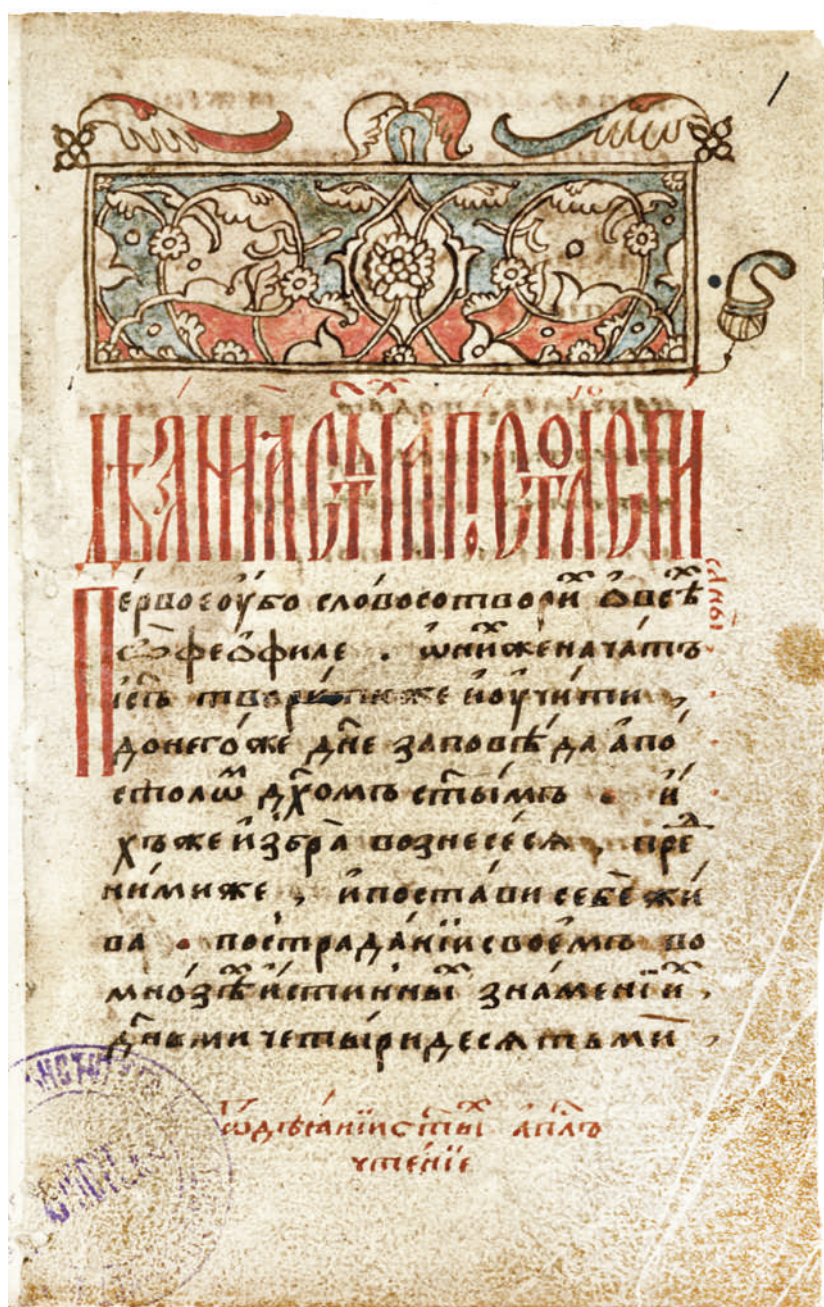 1
Дѣꙗнїа ст҃ыⷯ апⷭ҇лъ спи
Первоеоу́бо словосотвориⷯ ѽвсѣⷯ
ѽфеѻ́филе . ѡни́ⷯженачатъ
іс҃ъ твори́тиже иоучи́ти ,
донего́же дн҃е заповѣ́да апо́
столѡⷨ дх҃омъ ст҃ы́мъ . и́
хъже и҆збра̀ вознесе́ся , преⷣ
ни́миже , и҆поста́ви себѐ жи́
ва . пострада́нїисвое́мъ во
мно́зѣⷯи́стинныⷯ зна́менїиⷯ ,
дн҃ьмичеты́ридеся тьмѝ ,
ѡ҆дѣꙗ́нїист҃ыⷯ ап҃лъ
чте́нїе